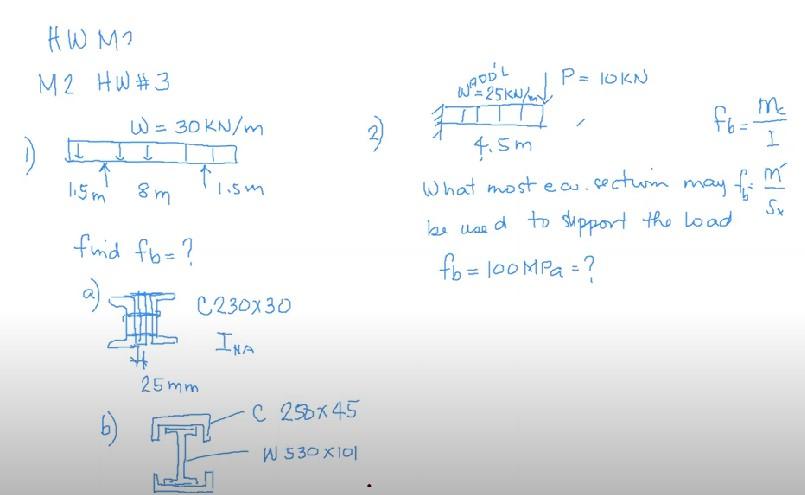 HW M2
M2 HW #3
1)
W = 30 KN/m
1.5m 8m 1.5m
find fb = ?
a)
C230X30
INA
25mm
b)
C 250X45
W 530X101
2)
ADD'L
W = 25KN/m
P = 10KN
4.5m
fb = Mc
I
What most eco. section may
be used to support the load
fb = M
Sx
fb = 100MPa = ?